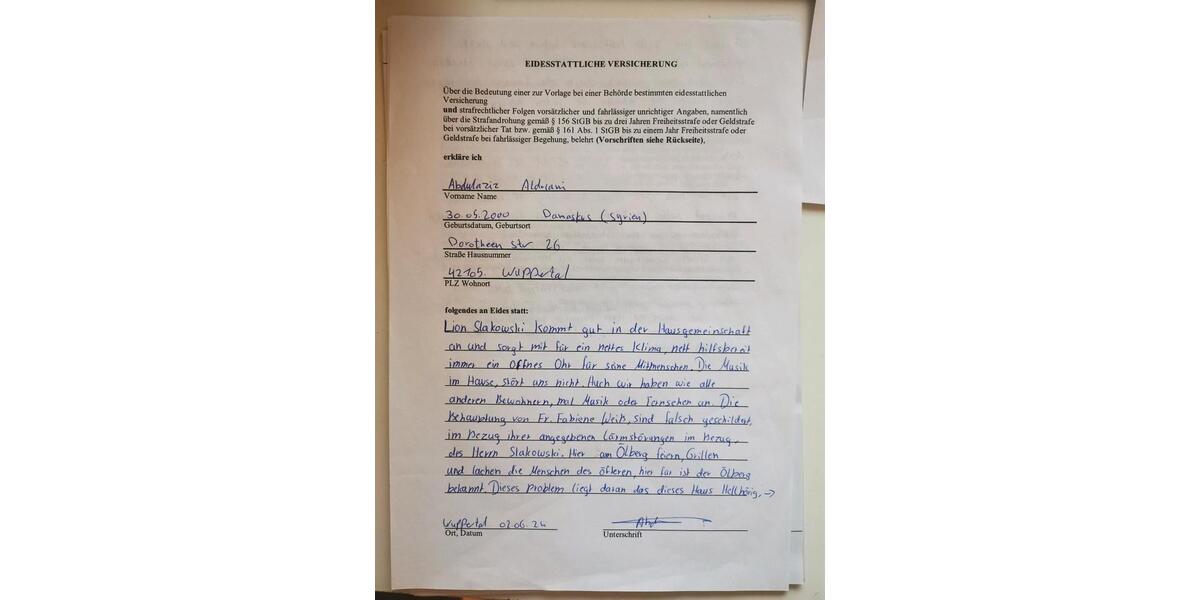 EIDESSTATTLICHE VERSICHERUNG
Über die Bedeutung einer zur Vorlage bei einer Behörde bestimmten eidesstattlichen
Versicherung
und strafrechtlicher Folgen vorsätzlicher und fahrlässiger unrichtiger Angaben, namentlich
über die Strafandrohung gemäß § 156 StGB bis zu drei Jahren Freiheitsstrafe oder Geldstrafe
bei vorsätzlicher Tat bzw. gemäß § 161 Abs. 1 StGB bis zu einem Jahr Freiheitsstrafe oder
Geldstrafe bei fahrlässiger Begehung, belehrt (Vorschriften siehe Rückseite),
erkläre ich
Abdulaziz
Vorname Name
30.05.2000 Damaskus (Syrien)
Geburtsdatum, Geburtsort
Dorotheen str 26
Straße Hausnummer
42105. Wuppertal
PLZ Wohnort
folgendes an Eides statt:
Lion Slakowski kommt gut in der Hausgemeinschaft
an und sorgt mit für ein nettes Klima, nett hilfsbereit
immer ein offnes Ohr für seine Mitmenschen. Die Musik
im Hause, stört uns nicht. Auch wir haben wie alle
anderen Bewohnern, mal Musik oder Fernsehen an. Die
Behauptung von Fr. Fabiene Weiß, sind falsch geschildert,
im bezug ihrer angegebenen Lärmstörungen im bezug,
des Herrn Slakowski. Hier am Ölberg feiern, Grillen
und lachen die Menschen des öfteren, hier für ist der Ölberg
bekannt. Dieses Problem liegt daran das dieses Haus Hellhörig, →
Wuppertal 02.06.24
Ort, Datum
Unterschrift